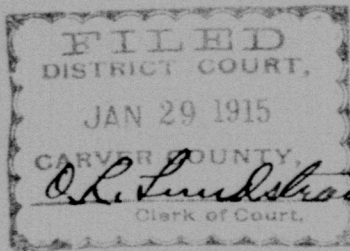 FILED
DISTRICT COURT,
JAN 29 1915
CARVER COUNTY,
O. L. Lundstro
Clerk of Court.